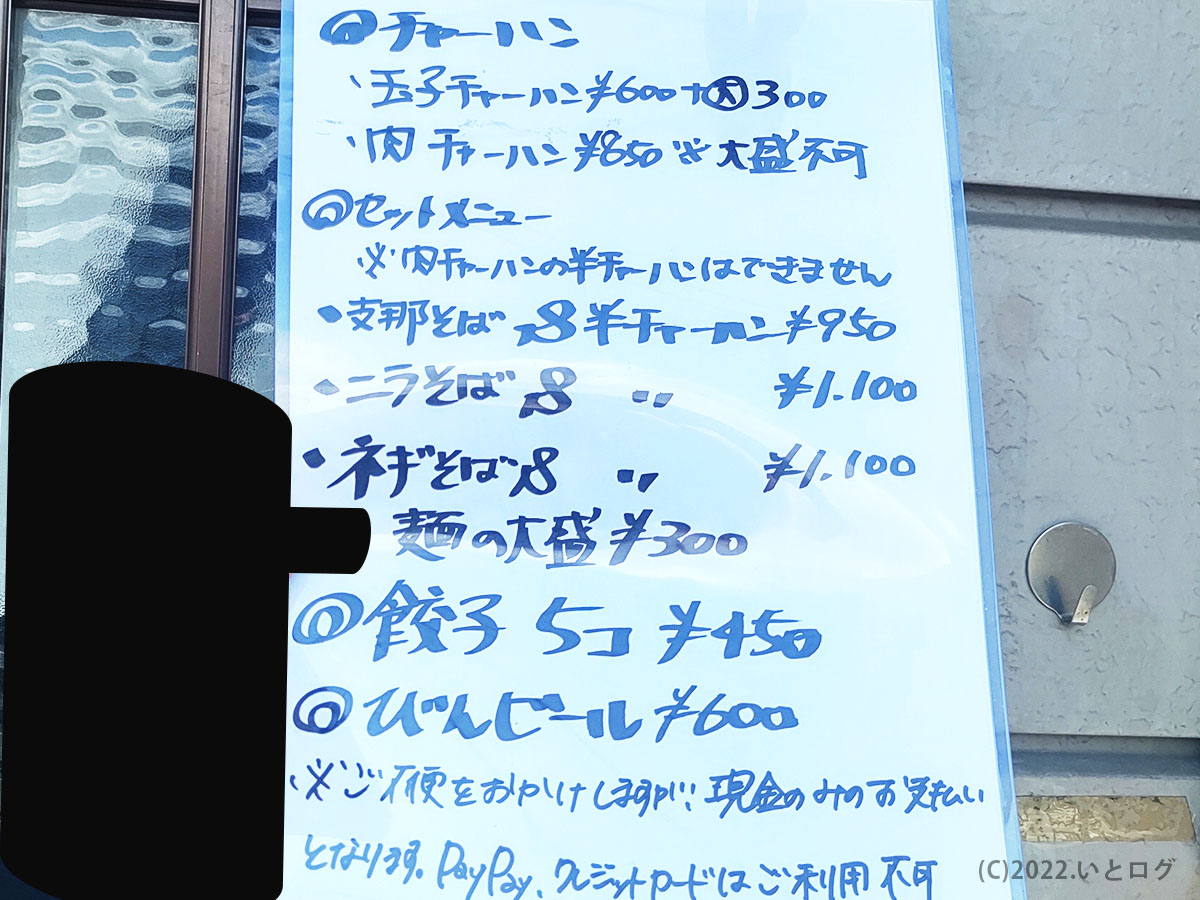 ◎チャーハン
・玉子チャーハン ¥600+㊅300
・肉チャーハン ¥850 ※大盛不可
◎セットメニュー
※肉チャーハンの半チャーハンはできません
・支那そば & 半チャーハン ¥950
・ニラそば & 〃 ¥1.100
・ネギそば & 〃 ¥1.100
麺の大盛 ¥300
◎餃子 5コ ¥450
◎びんビール ¥600
※ご不便をおかけしますが、現金のみのお支払い
となります。PayPay、クレジットカードはご利用不可
(C)2022.いとログ